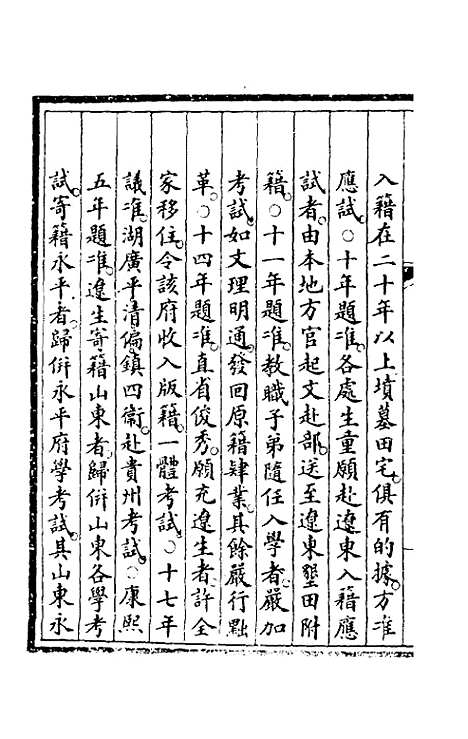 入籍在二十年以上墳墓田宅俱有的據方准
應試○十年題准各處生童願赴遼東入籍應
試者由本地方官起文赴部送至遼東墾田附
籍○十一年題准教職子弟隨任入學者嚴加
考試如文理明通發回原籍肄業其餘嚴行黜
革○十四年題准直省俊秀願充遼生者許全
家移住令該府收入版籍一體考試○十七年
議准湖廣平清偏鎮四衞赴貴州考試○康熙
五年題准遼生寄籍山東者歸併山東各學考
試寄籍永平者歸併永平府學考試其山東永